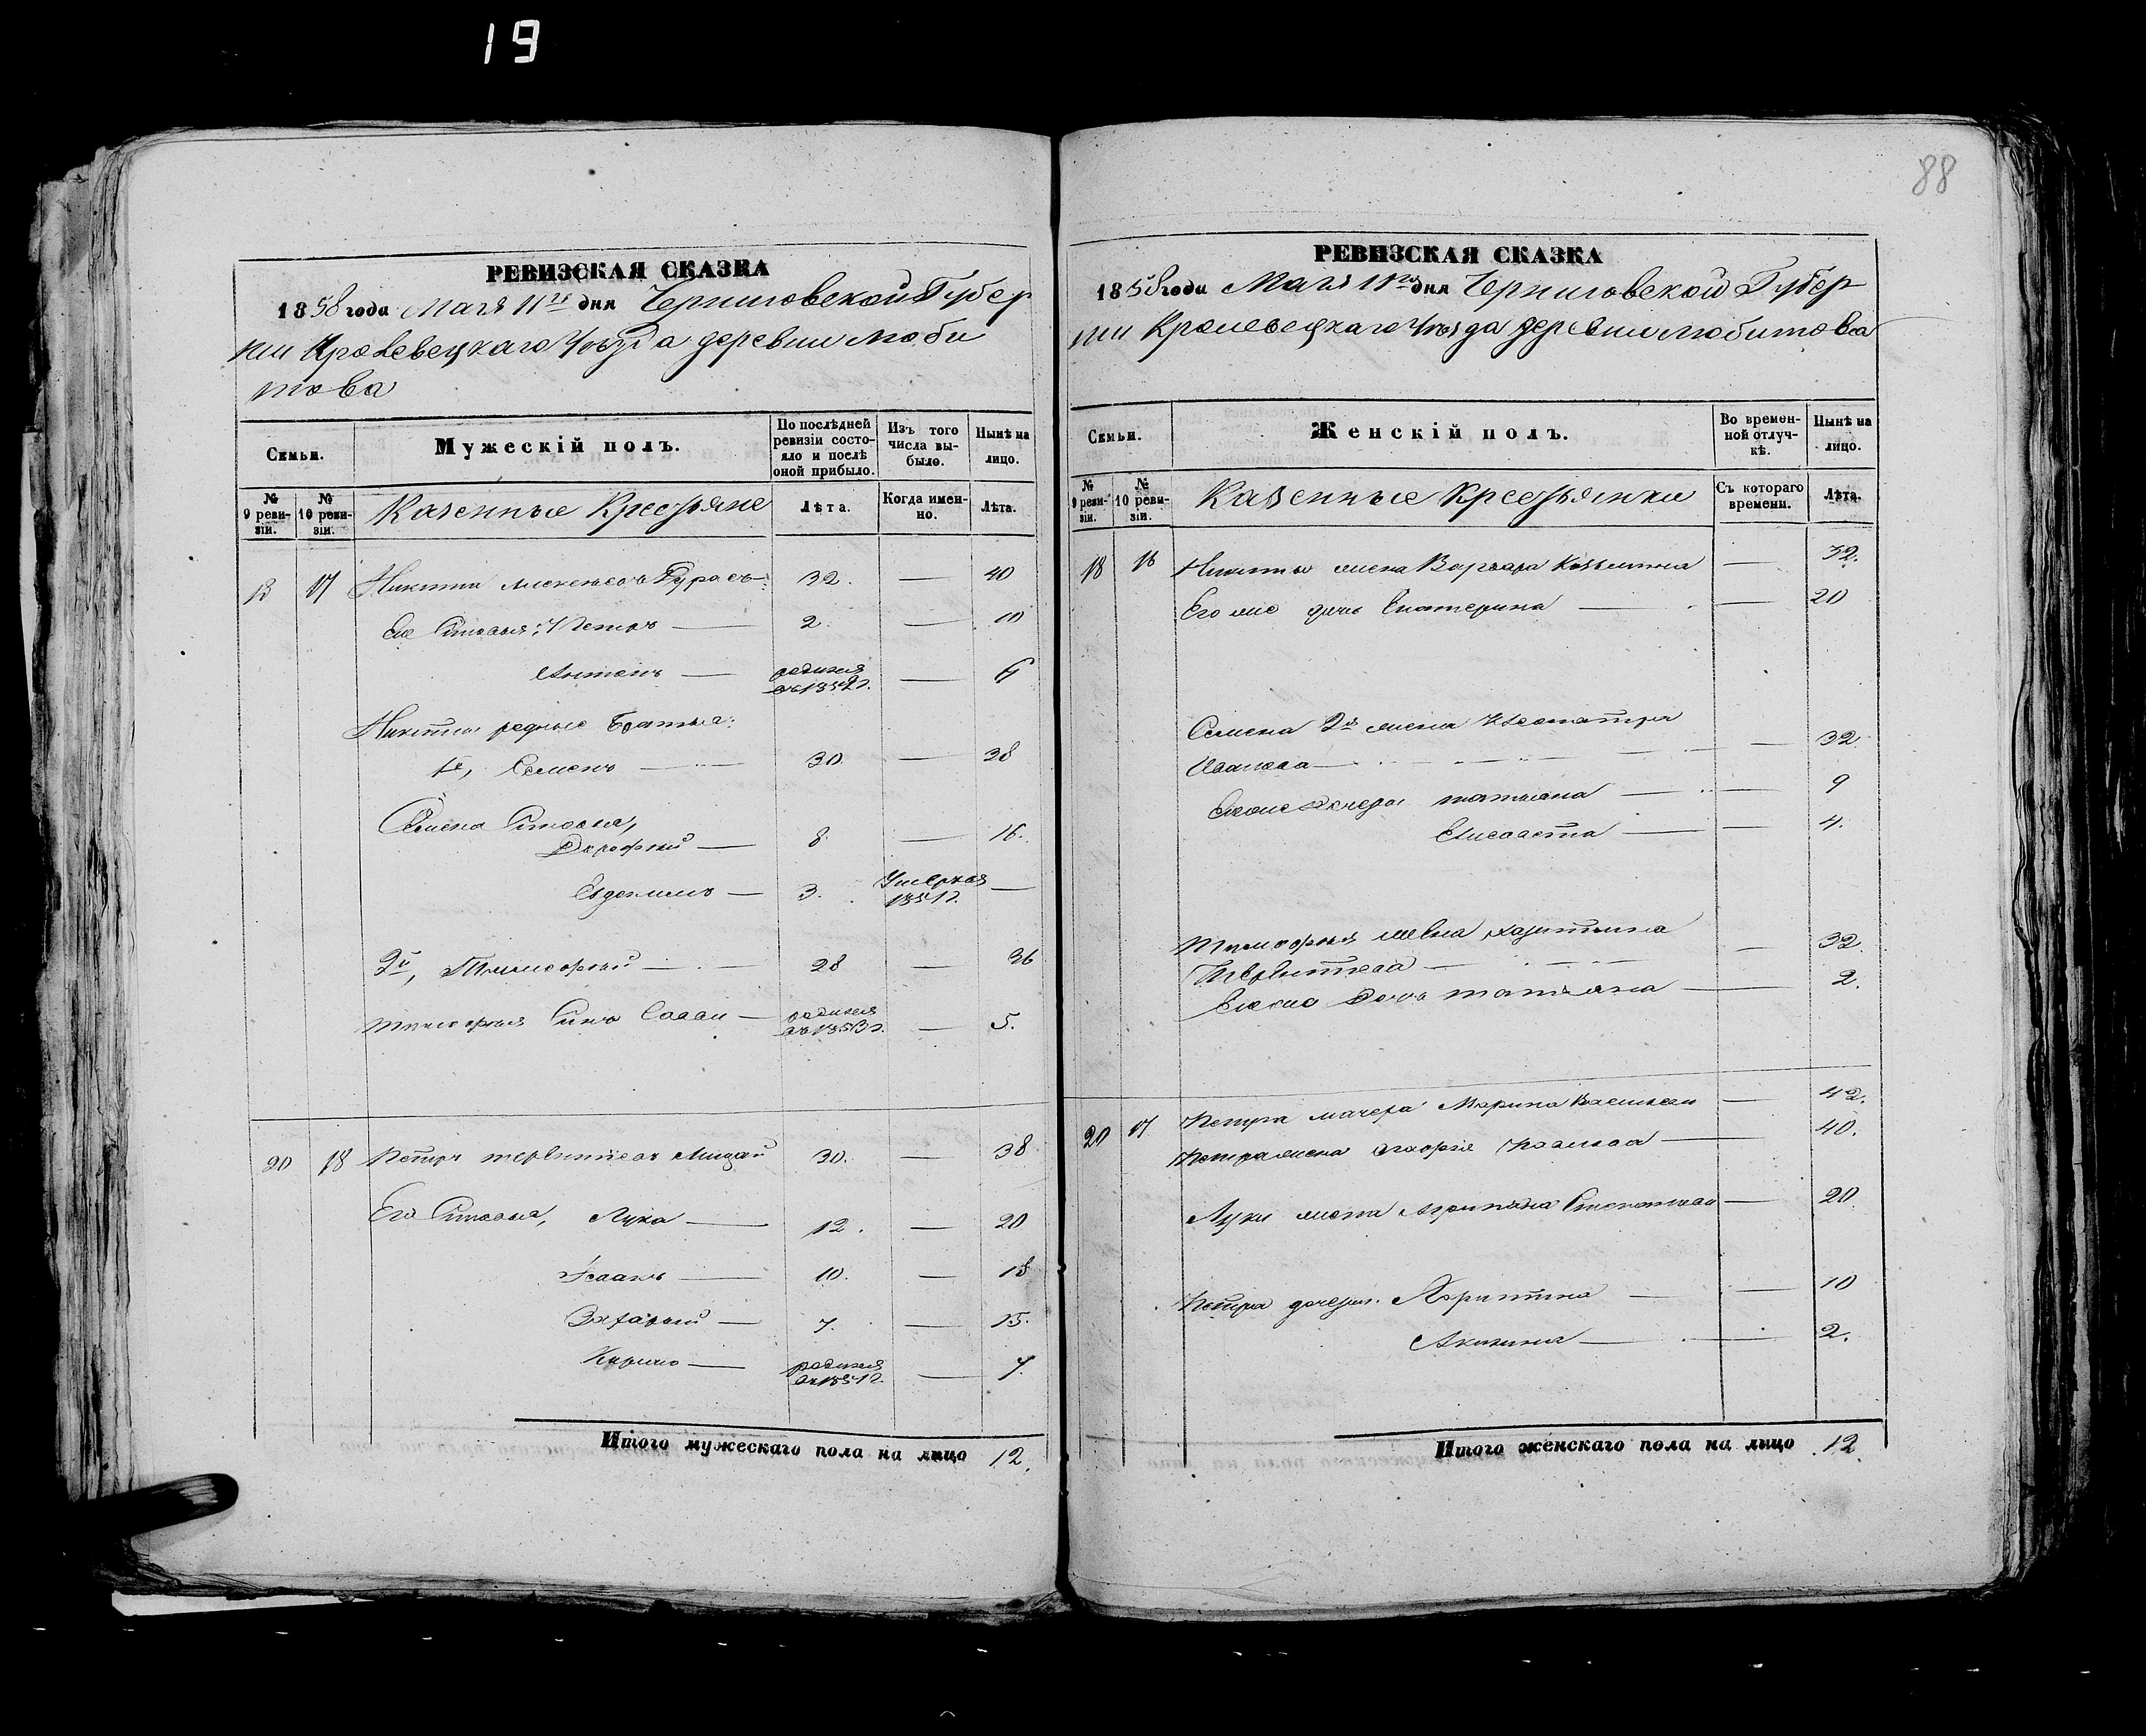 19
88
РЕВИЗСКАЯ СКАЗКА
1858 года Мая 11го дня Черниговской Губер
нии Кролевецкаго Уѣзда деревни Люби
това
Семьи.
Мужескій полъ.
По послѣдней ревизіи состояло и послѣ оной прибыло.
Изъ того числа выбыло.
Нынѣ на лицо.
№ 9 ревизіи.
№ 10 ревизіи.
Казенные Крестьяне
Лѣта.
Когда именно.
Лѣта.
18 17 Никита 32. — 40
Его Сыновья: 1 Петръ — 2. — 10
Антонъ — родился въ 1852г. — 6
Никиты родные Братья:
1й, Семенъ — 30. — 38
Семена Сыновья,
Дорофей — 8. — 16.
Евдокимъ — 3. Умеръ 1851г. —
2й, Тимофей — 28 — 36
Тимофея Сынъ Савва — родился въ 1853г. — 5.
20 18 Петръ 30. — 38
Его Сыновья, Лука — 12. — 20
Исаакъ — 10. — 18
Захарій — 7. — 15.
Кирило — родился въ 1851г. — 7.
Итого мужескаго пола на лицо 12.
РЕВИЗСКАЯ СКАЗКА
1858 года Мая 11го дня Черниговской Губер
нии Кролевецкаго Уѣзда деревни Любитова
Семьи.
Женскій полъ.
Во временной отлучкѣ.
Нынѣ на лицо.
№ 9 ревизіи.
№ 10 ревизіи.
Казенные Крестьянки
Съ котораго времени.
Лѣта.
18 16 Никиты жена Варвара Козьмина — 32.
Его же дочь Екатерина — — 20
Семена 2я жена Клеопатра
Иванова — — 32.
Его же дочери Татьяна — — 9
Елисавета — — 4.
Тимофея жена Харитина
— — 32.
Его же Дочь Татьяна — 2.
20 17 Петра мачеха Марина Васильева — 42.
Петра жена Агафія — 40.
Луки жена Агрипина Степанова — 20.
Петра дочери Харитина — — 10
Акилина — — 2.
Итого женскаго пола на лицо 12.